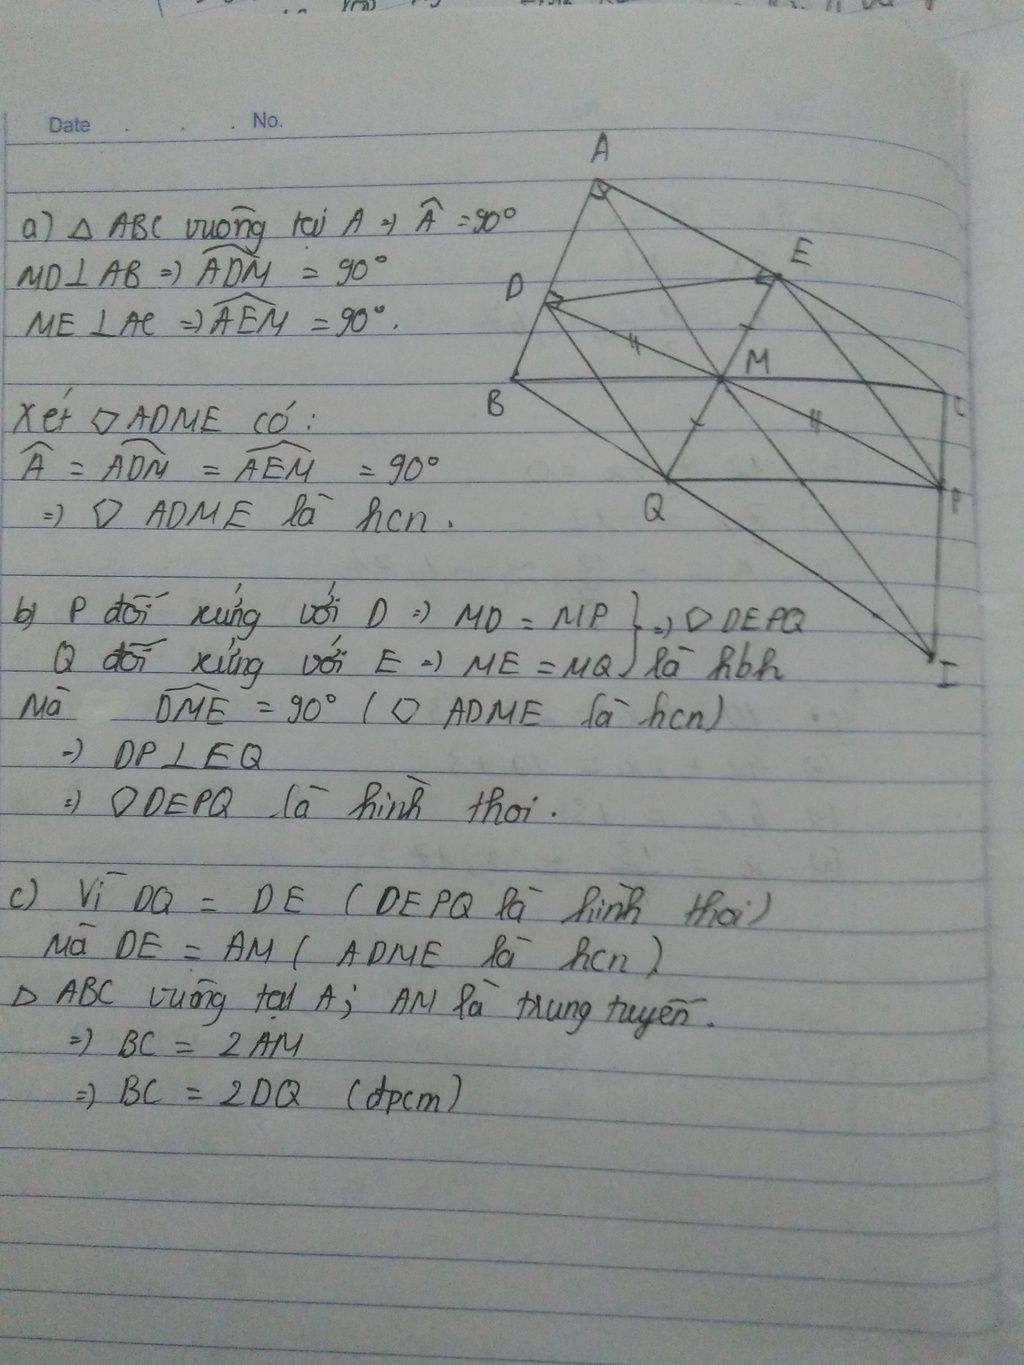 Date . . . No.
a) △ ABC vuông tại A => Â = 90°
MD⊥AB => ADM = 90°
ME ⊥AC => AEM = 90°.
Xét ▱ ADME có:
 = ADM = AEM = 90°
=> ▱ ADME là hcn.
b) P đối xứng với D => MD = MP } => ▱ DEPQ
Q đối xứng với E => ME = MQ } là hbh
Mà DME = 90° ( ▱ ADME là hcn)
=> DP⊥EQ
=> ▱DEPQ là hình thoi.
c) Vì DQ = DE ( DEPQ là hình thoi)
Mà DE = AM ( ADME là hcn )
△ ABC vuông tại A; AM là trung tuyến.
=> BC = 2AM
=> BC = 2DQ (đpcm)
A
E
D
M
B
C
Q
P
I